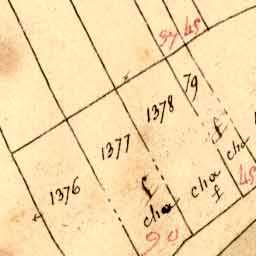 37 45
79
1378
1377
1376
f
f
cha
cha
f
cha
45
90